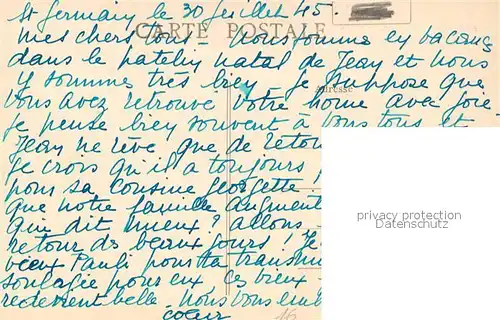 St Germain le 30 Juillet 45.
CARTE POSTALE
mes chers tous - nous sommes en vacances
dans le patelin natal de Jean et nous
y sommes très bien. Je suppose que
Adresse
vous avez retrouvé votre home avec joie
Je pense bien souvent à vous tous et
Jean ne rêve que de retou
Je crois qu'il a toujours
pour sa cousine Georgette
que notre famille augment
Qui dit mieux? allons
retour des beaux jours! Je
vieux Pauli pour ta transmi
soulagée pour eux, ces vieux
redevient belle. Nous vous em
coeur
16
privacy protection
(Datenschutz)